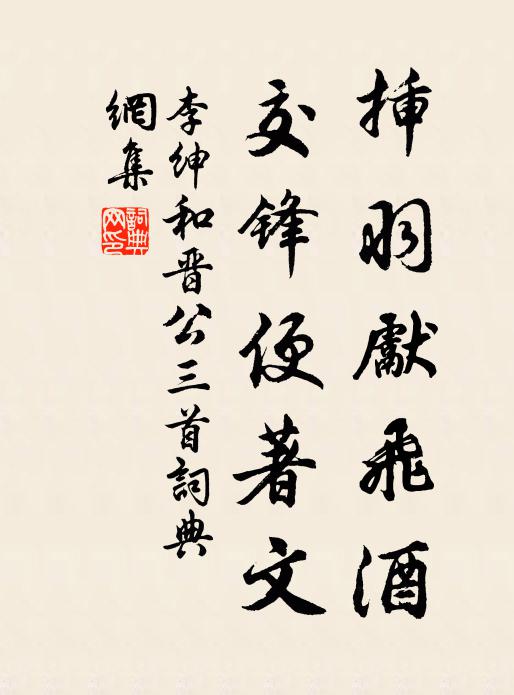 插羽獻飛酒
交鋒便著文
李紳和晋公三首詞典
網集
詞典
网印